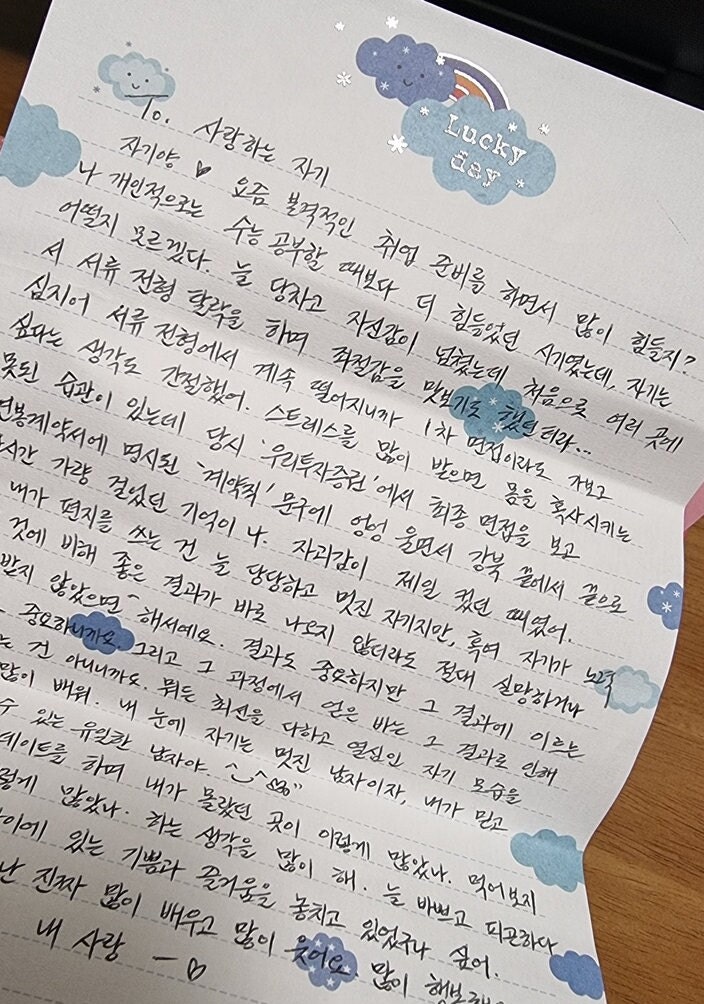 Lucky
day
To. 사랑하는 자기
자기야 ♡ 요즘 본격적인 취업 준비를 하면서 많이 힘들지?
나 개인적으로는 수능 공부할 때보다 더 힘들었던 시기였는데, 자기는
어떨지 모르겠다. 늘 당차고 자신감이 넘쳤는데 처음으로 여러 곳에
서 서류 전형 탈락을 하며 좌절감을 맛보기도 했던터라...
심지어 서류 전형에서 계속 떨어지니까 1차 면접이라도 가보고
싶다는 생각도 간절했어. 스트레스를 많이 받으면 몸을 혹사시키는
못된 습관이 있는데 당시 '우리투자증권'에서 최종 면접을 보고
연봉계약서에 명시된 '계약직' 문구에 엉엉 울면서 강북 끝에서 끝으로
시간 가량 걸었던 기억이 나. 자괴감이 제일 컸던 때였어.
내가 편지를 쓰는 건 늘 당당하고 멋진 자기지만, 혹여 자기가 노력
것에 비해 좋은 결과가 바로 나오지 않더라도 절대 실망하거나
받지 않았으면 해서에요. 결과도 중요하지만 그 결과에 이르는
중요하니까요. 그리고 그 과정에서 얻은 바는 그 결과로 인해
는 건 아니니까요. 뭐든 최선을 다하고 열심인 자기 모습을
많이 배워. 내 눈에 자기는 멋진 남자이자, 내가 믿고
수 있는 유일한 남자야. ^◡^ ♡
데이트를 하며 내가 몰랐던 곳이 이렇게 많았나. 먹어보지
렇게 많았나. 하는 생각을 많이 해. 늘 바쁘고 피곤하다
사이에 있는 기쁨과 즐거움을 놓치고 있었구나 싶어.
난 진짜 많이 배우고 많이 웃어요. 많이
내 사랑 — ♡